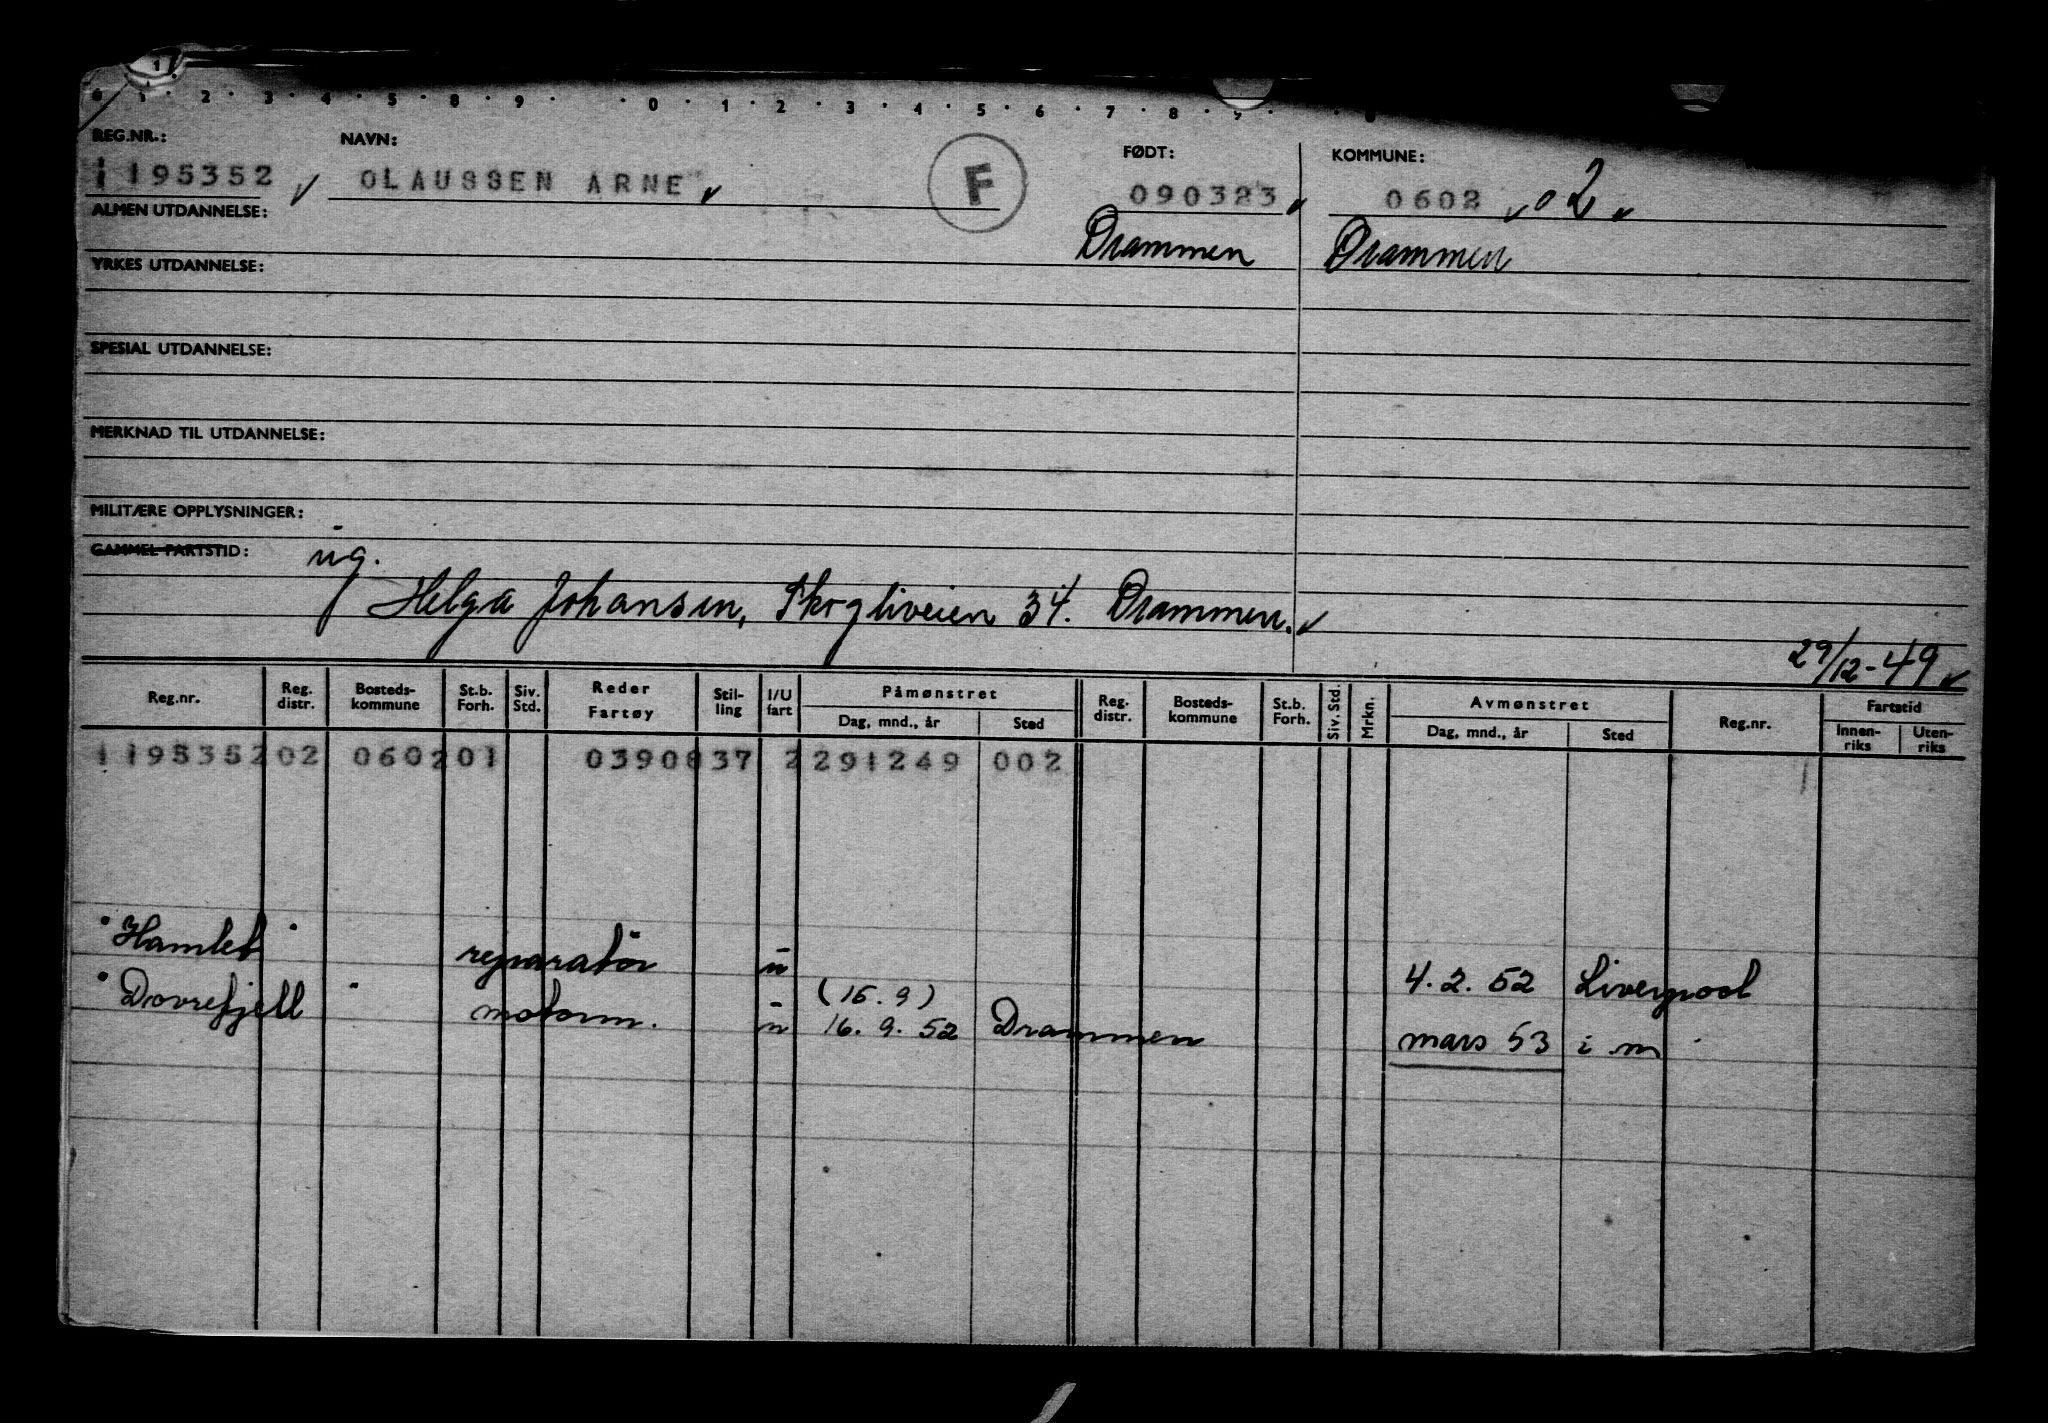 1
0 1 2 3 4 5 8 9 0 1 2 3 4 5 6 7 8 9
REG.NR.: NAVN: FØDT: KOMMUNE:
1195352 OLAUSSEN ARNE F 090323 0602 02
ALMEN UTDANNELSE: Drammen Drammen
YRKES UTDANNELSE:
SPESIAL UTDANNELSE:
MERKNAD TIL UTDANNELSE:
MILITÆRE OPPLYSNINGER:
GAMMEL FARTSTID: ug.
Helga Johansen, Skogliveien 34. Drammen.
29/12-49
Reg.nr. Reg. distr. Bosteds-kommune St.b. Forh. Siv. Std. Reder Fartøy Stil-ling I/U fart Påmønstret Dag, mnd., år Sted Reg. distr. Bosteds-kommune St.b. Forh. Siv. Std. Mrkn. Avmønstret Dag, mnd., år Sted Reg.nr. Fartstid Innen-riks Uten-riks
1195352 02 0602 01 03908 37 2 291249 002
"Hamlet" reparatør u 4.2.52 Liverpool
(15.9)
"Dovrefjell" motorm. u 16.9.52 Drammen mars 53 i m